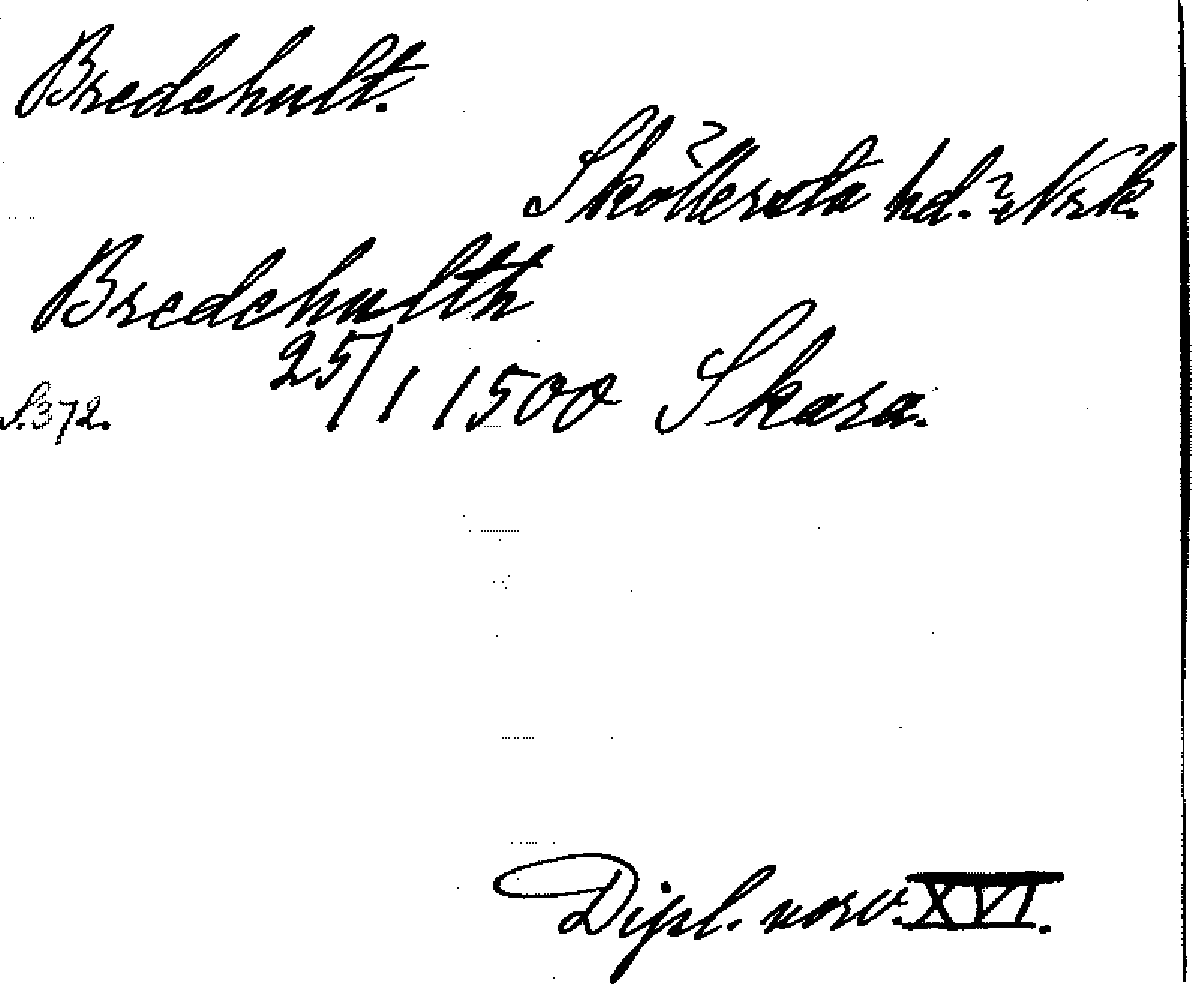 Bredehult.
Sköllersta hd.? Nrk.
Bredehulth
25/1 1500 Skara.
S. 372.
Dipl. norv. XVI.